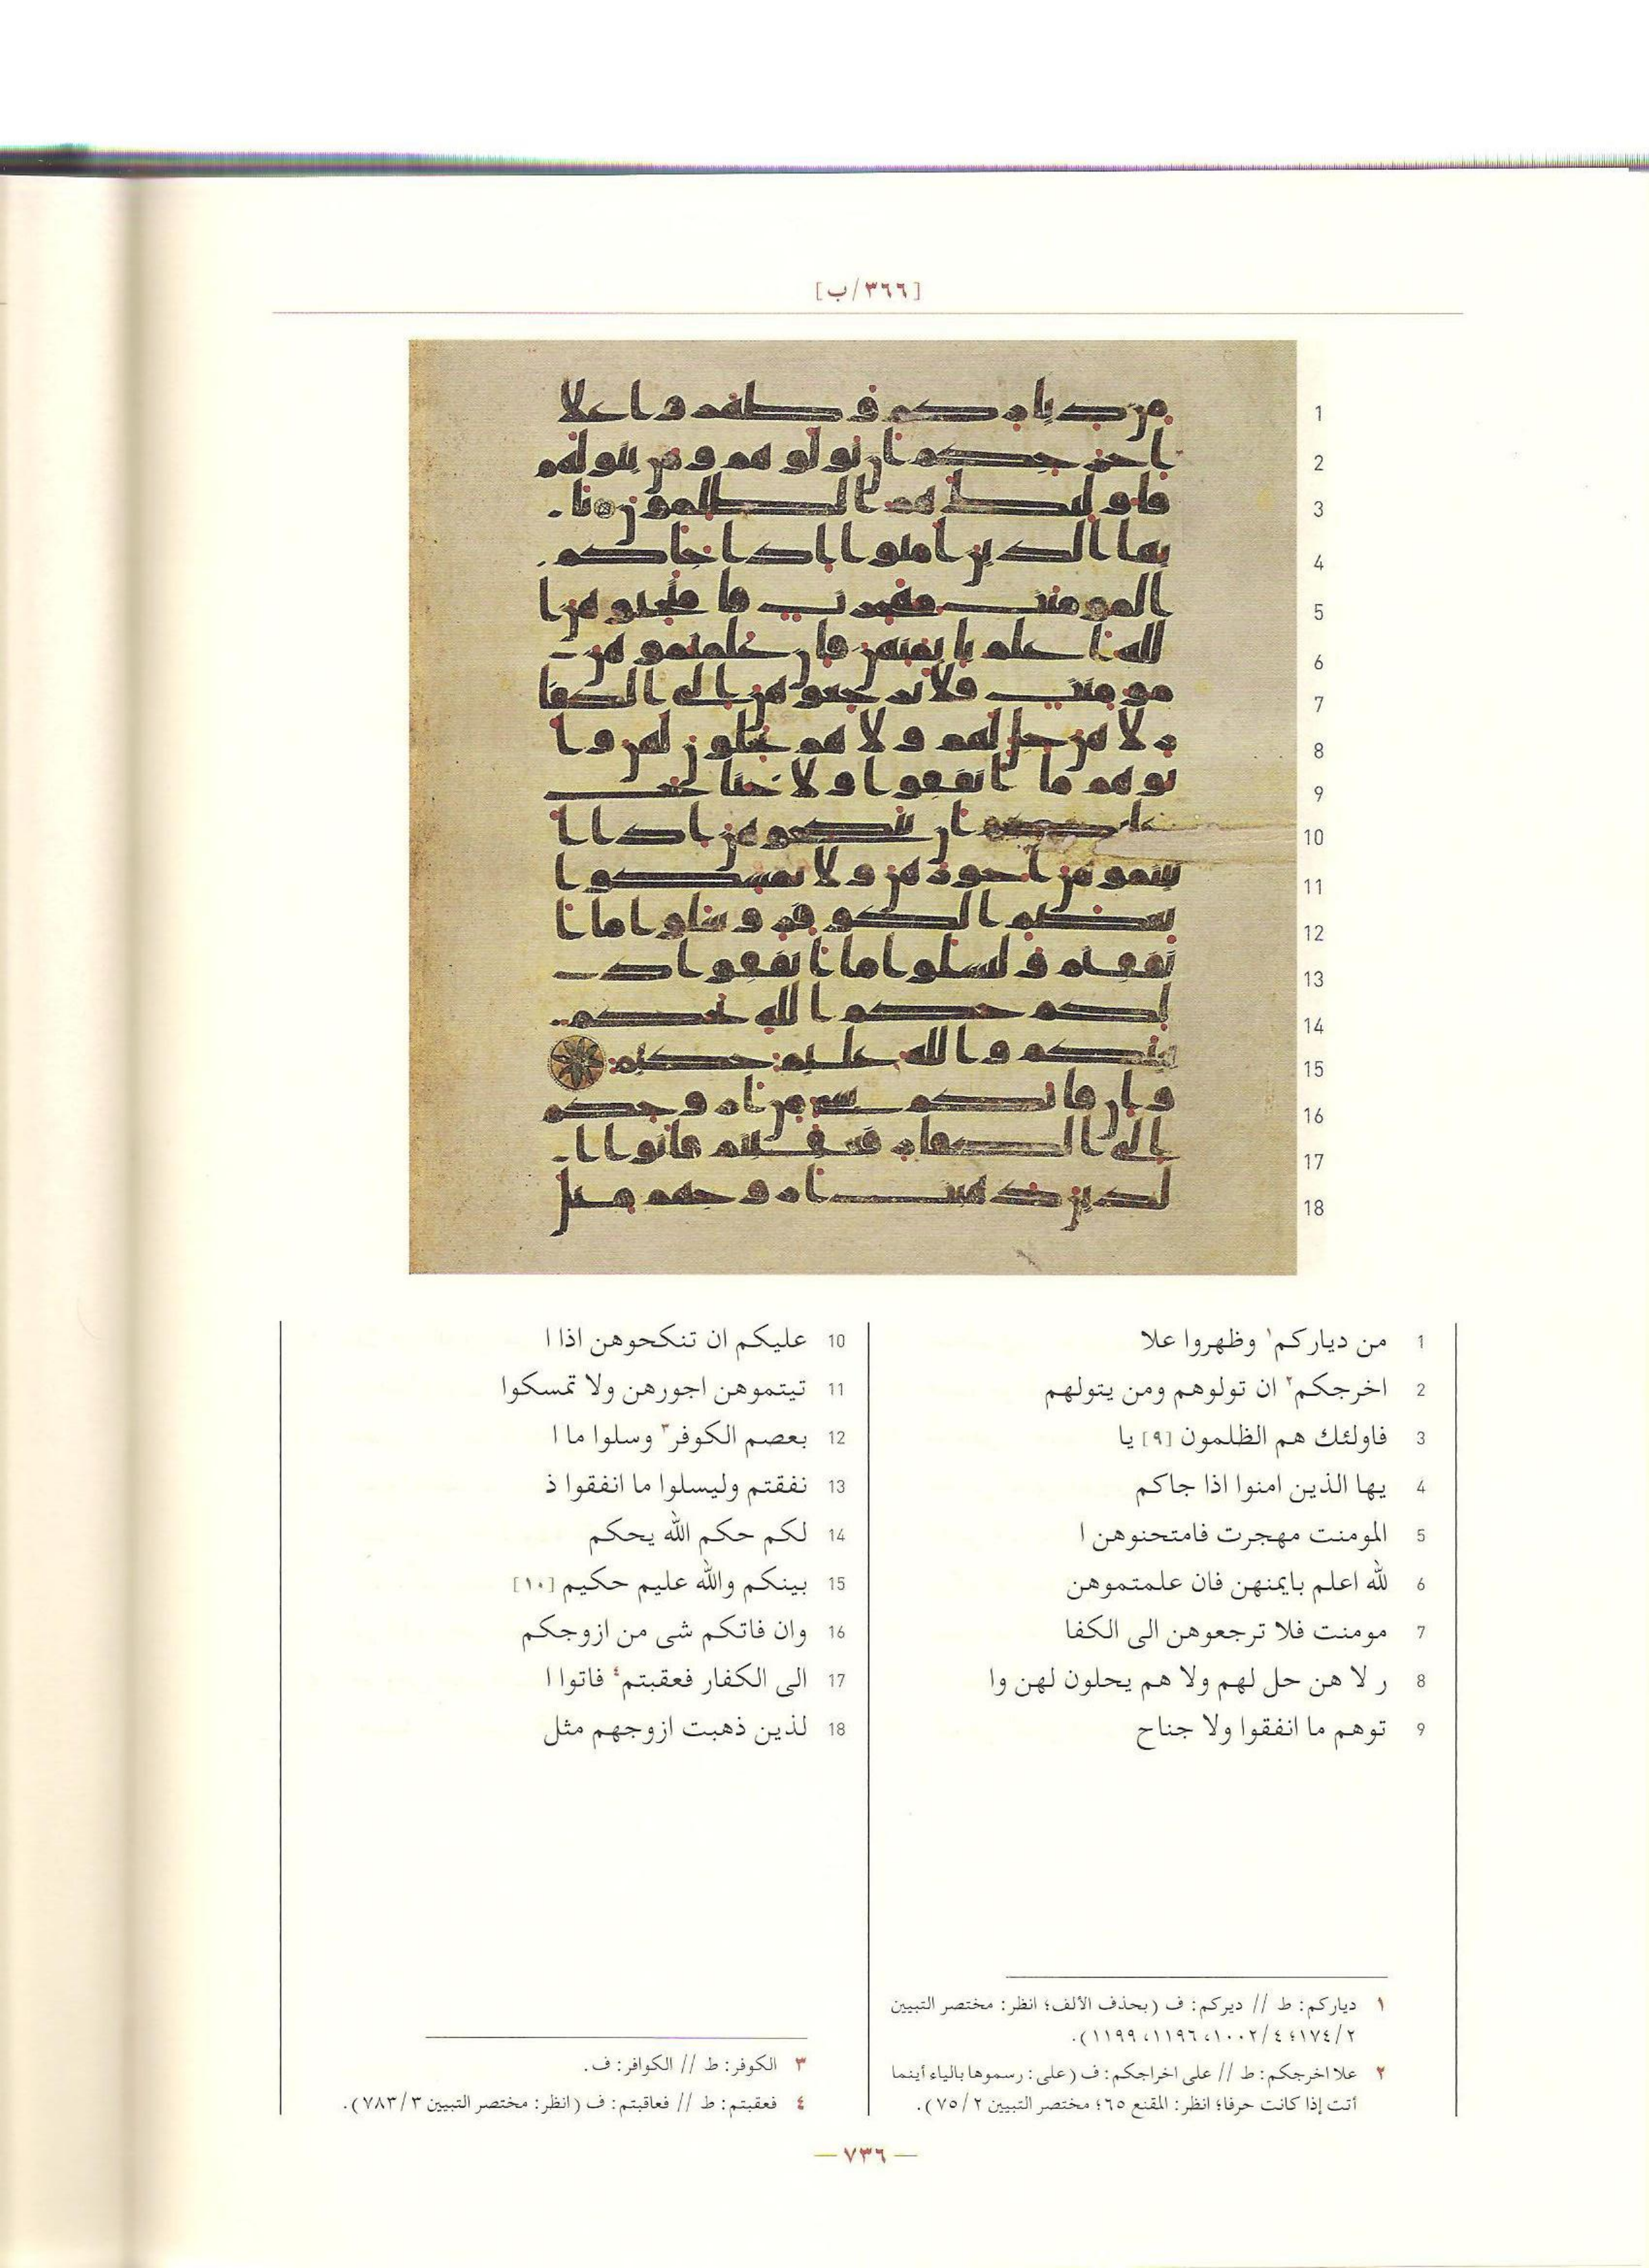 [٣٦٦/ب]
1
2
3
4
5
6
7
8
9
10
11
12
13
14
15
16
17
18
1 من دياركم١ وظهروا علا
2 اخرجكم٢ ان تولوهم ومن يتولهم
3 فاولئك هم الظلمون [٩] يا
4 يها الذين امنوا اذا جاكم
5 المومنت مهجرت فامتحنوهن ا
6 لله اعلم بايمنهن فان علمتموهن
7 مومنت فلا ترجعوهن الى الكفا
8 ر لا هن حل لهم ولا هم يحلون لهن وا
9 توهم ما انفقوا ولا جناح
10 عليكم ان تنكحوهن اذا ا
11 تيتموهن اجورهن ولا تمسكوا
12 بعصم الكوفر٣ وسلوا ما ا
13 نفقتم وليسلوا ما انفقوا ذ
14 لكم حكم الله يحكم
15 بينكم والله عليم حكيم [١٠]
16 وان فاتكم شى من ازوجكم
17 الى الكفار فعقبتم٤ فاتوا ا
18 لذين ذهبت ازوجهم مثل
١ دياركم: ط // ديركم: ف (بحذف الألف؛ انظر: مختصر التبيين
٢/١٧٤؛ ٤/١٠٠٢، ١١٩٦، ١١٩٩).
٢ علا اخرجكم: ط // على اخراجكم: ف (على: رسموها بالياء أينما
أتت إذا كانت حرفا؛ انظر: المقنع ٦٥؛ مختصر التبيين ٢/٧٥).
٣ الكوفر: ط // الكوافر: ف.
٤ فعقبتم: ط // فعاقبتم: ف (انظر: مختصر التبيين ٣/٧٨٣).
— ٧٣٦ —